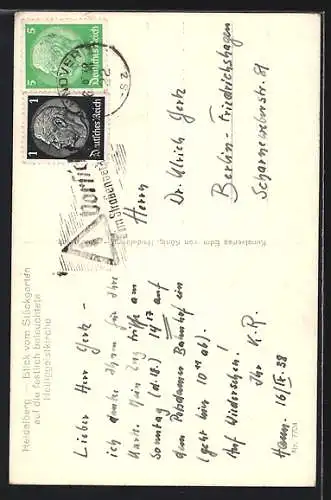 Heidelberg Blick vom Stückgarten
auf die festlich beleuchtete
Heiliggeistkirche
Lieber Herr Gertz –
ich danke Ihnen für Ihre
Karte. Mein Zug trifft am
Sonntag (d. 18.) 14 17 auf
dem Potsdamer Bahnhof ein
(geht hier 10 19 ab).
Auf Wiedersehen!
Ihr K. R.
Hann. 16/IX 38
Nr. 7704
Kunstverlag Edm. von König, Heidelberg
5 5
Deutsches Reich
1
Deutsches Reich
im Straßenverkehr
Herrn
Dr. Ulrich Gertz
Berlin-Friedrichshagen
Scharnweberstr. 81